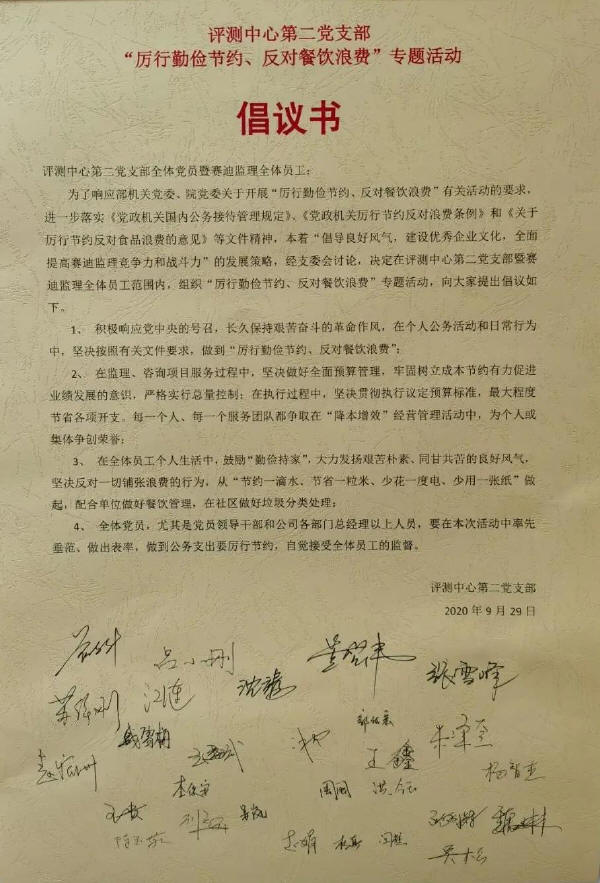 评测中心第二党支部
“厉行勤俭节约、反对餐饮浪费”专题活动
倡议书
评测中心第二党支部全体党员暨赛迪监理全体员工：
为了响应部机关党委、院党委关于开展“厉行勤俭节约、反对餐饮浪费”有关活动的要求，
进一步落实《党政机关国内公务接待管理规定》、《党政机关厉行节约反对浪费条例》和《关于
厉行节约反对食品浪费的意见》等文件精神，本着“倡导良好风气，建设优秀企业文化，全面
提高赛迪监理竞争力和战斗力”的发展策略，经支委会讨论，决定在评测中心第二党支部暨赛
迪监理全体员工范围内，组织“厉行勤俭节约、反对餐饮浪费”专题活动，向大家提出倡议如
下。
1、 积极响应党中央的号召，长久保持艰苦奋斗的革命作风，在个人公务活动和日常行为
中，坚决按照有关文件要求，做到“厉行勤俭节约、反对餐饮浪费”；
2、 在监理、咨询项目服务过程中，坚决做好全面预算管理，牢固树立成本节约有力促进
业绩发展的意识，严格实行总量控制；在执行过程中，坚决贯彻执行议定预算标准，最大程度
节省各项开支。每一个人、每一个服务团队都争取在“降本增效”经营管理活动中，为个人或
集体争创荣誉；
3、 在全体员工个人生活中，鼓励“勤俭持家”，大力发扬艰苦朴素、同甘共苦的良好风气，
坚决反对一切铺张浪费的行为，从“节约一滴水、节省一粒米、少花一度电、少用一张纸”做
起，配合单位做好餐饮管理，在社区做好垃圾分类处理；
4、 全体党员，尤其是党员领导干部和公司各部门总经理以上人员，要在本次活动中率先
垂范、做出表率，做到公务支出要厉行节约，自觉接受全体员工的监督。
评测中心第二党支部
2020 年 9 月 29 日
吕小刚
张雪峰
江连
王鑫
杨智杰
周围
吴松